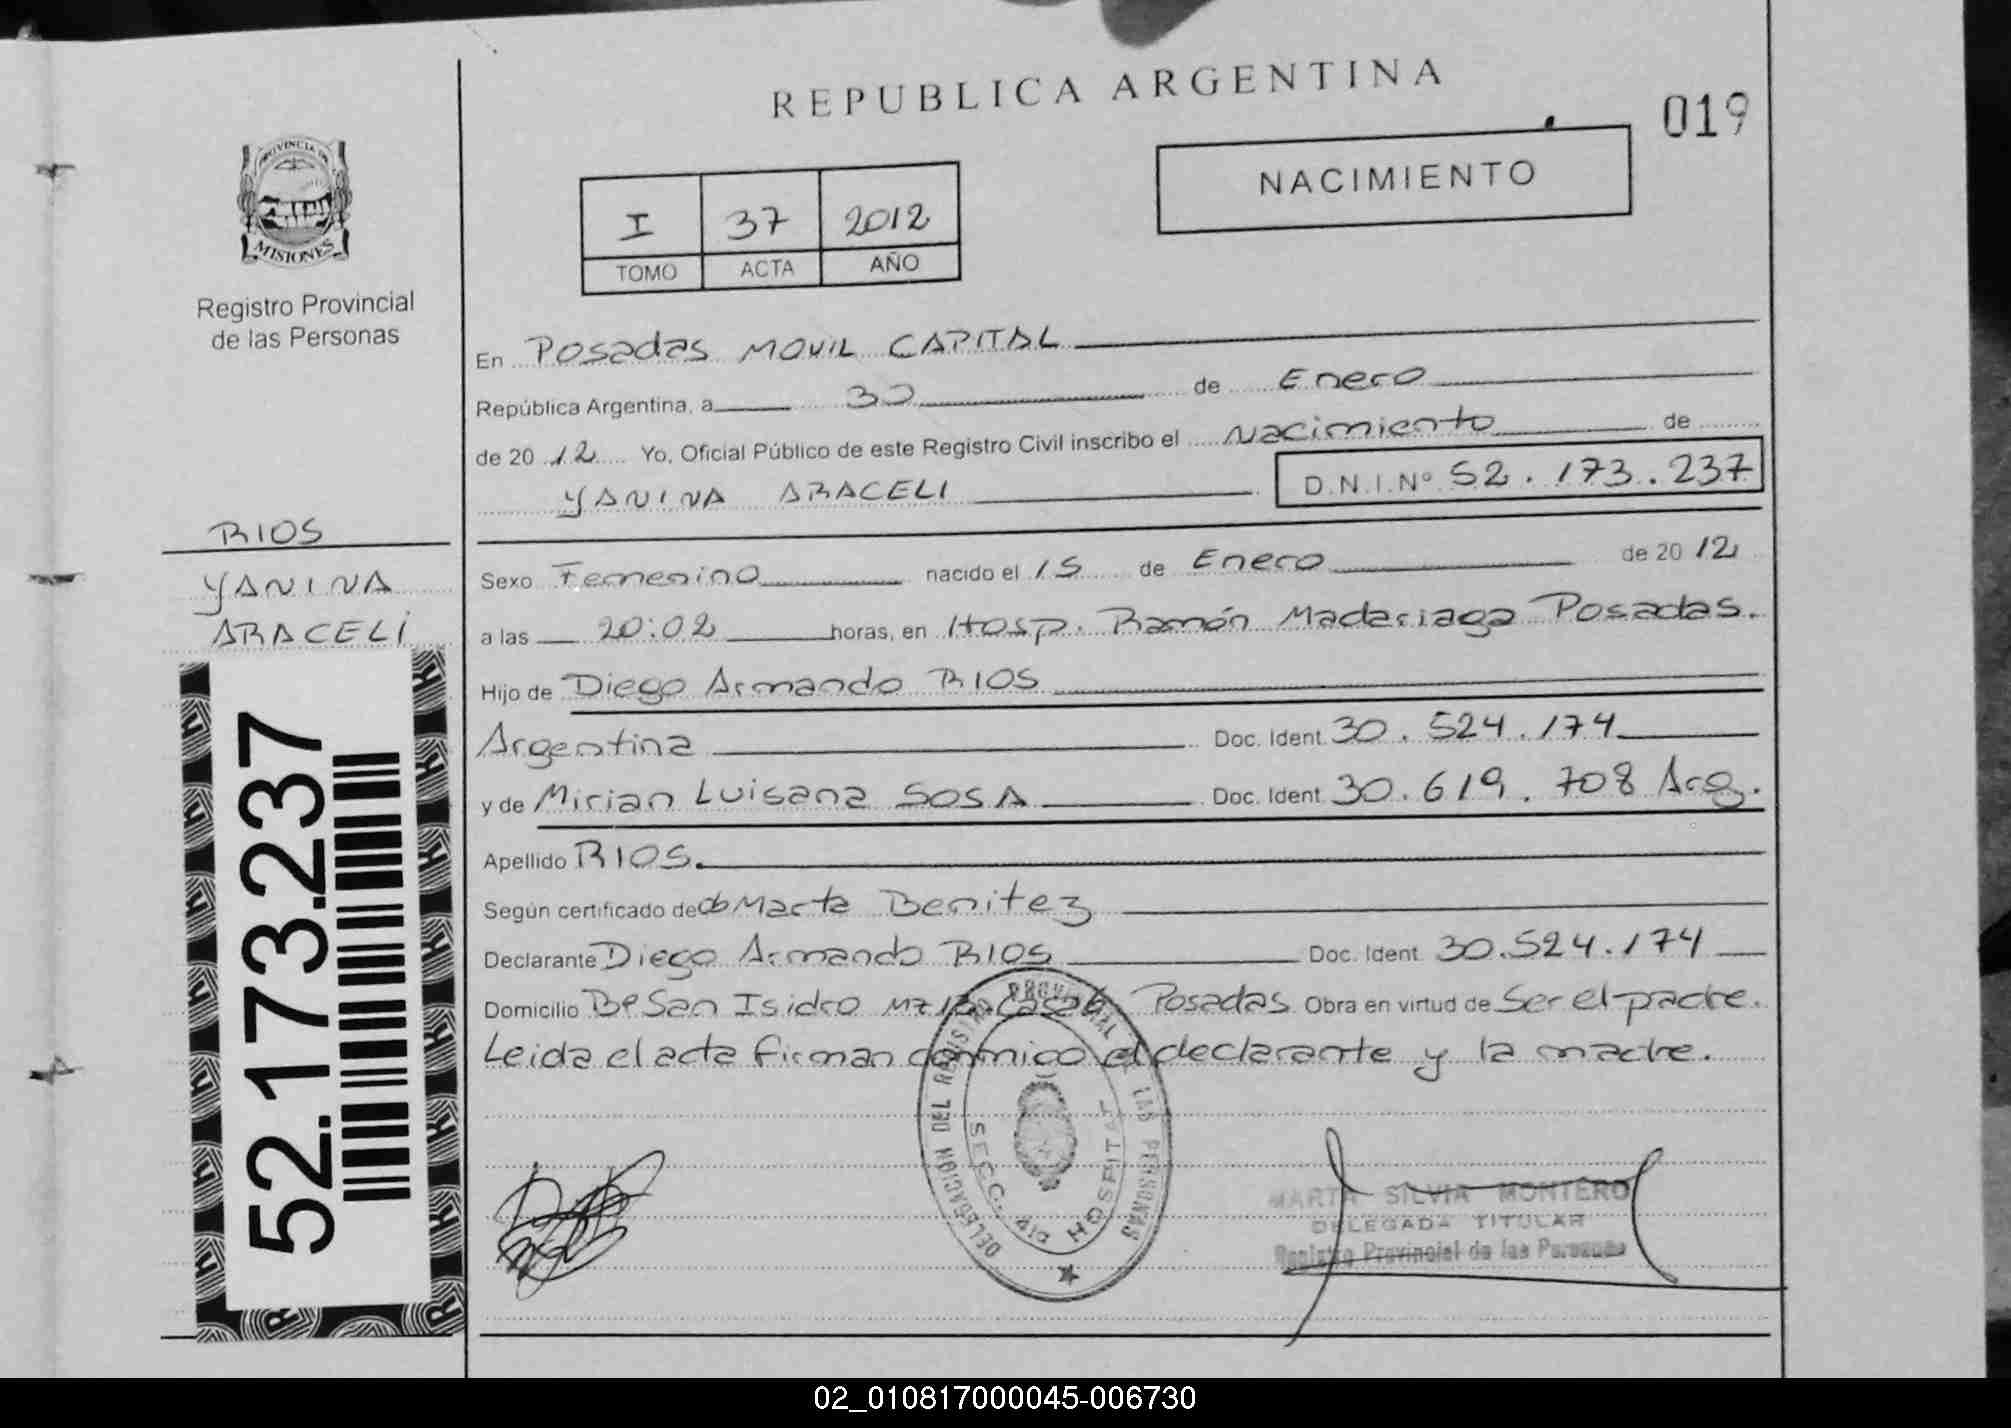 REPUBLICA ARGENTINA
019
NACIMIENTO
I 37 2012
TOMO ACTA AÑO
PROVINCIA DE
MISIONES
Registro Provincial
de las Personas
RIOS
YANINA
ARACELI
52.173.237
En Posadas MOVIL CAPITAL
República Argentina, a 30 de Enero
de 2012 Yo, Oficial Público de este Registro Civil inscribo el Nacimiento de
YANINA ARACELI D.N.I.Nº 52.173.237
Sexo Femenino nacido el 15 de Enero de 2012
a las 20:02 horas, en Hosp. Ramón Madariaga Posadas.
Hijo de Diego Armando RIOS
Argentina Doc. Ident. 30.524.174
y de Mirian Luisana SOSA Doc. Ident. 30.619.708 Arg.
Apellido RIOS.
Según certificado de Marta Benitez
Declarante Diego Armando RIOS Doc. Ident. 30.524.174
Domicilio Bº San Isidro Mz Casa Posadas Obra en virtud de Ser el padre.
Leida el acta firman conmigo el declarante y la madre.
DELEGACIÓN DEL REGISTRO PROVINCIAL DE LAS PERSONAS
SECC. 4ta HOSPITAL
MARTA SILVIA MONTERO
DELEGADA TITULAR
Registro Provincial de las Personas
02_010817000045-006730